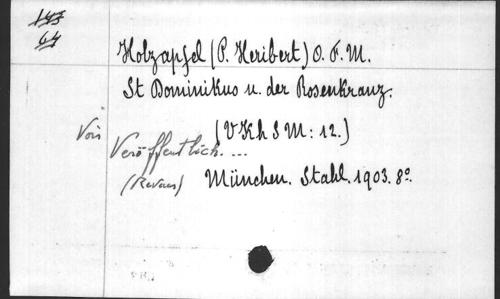 143
64
Holzapfel (P. Heribert) O. F. M.
St Dominikus u. der Rosenkranz.
(V Kh S M: 12.)
Voir Veröffentlich. ...
(Revues)
München. Stahl. 1903. 8°.